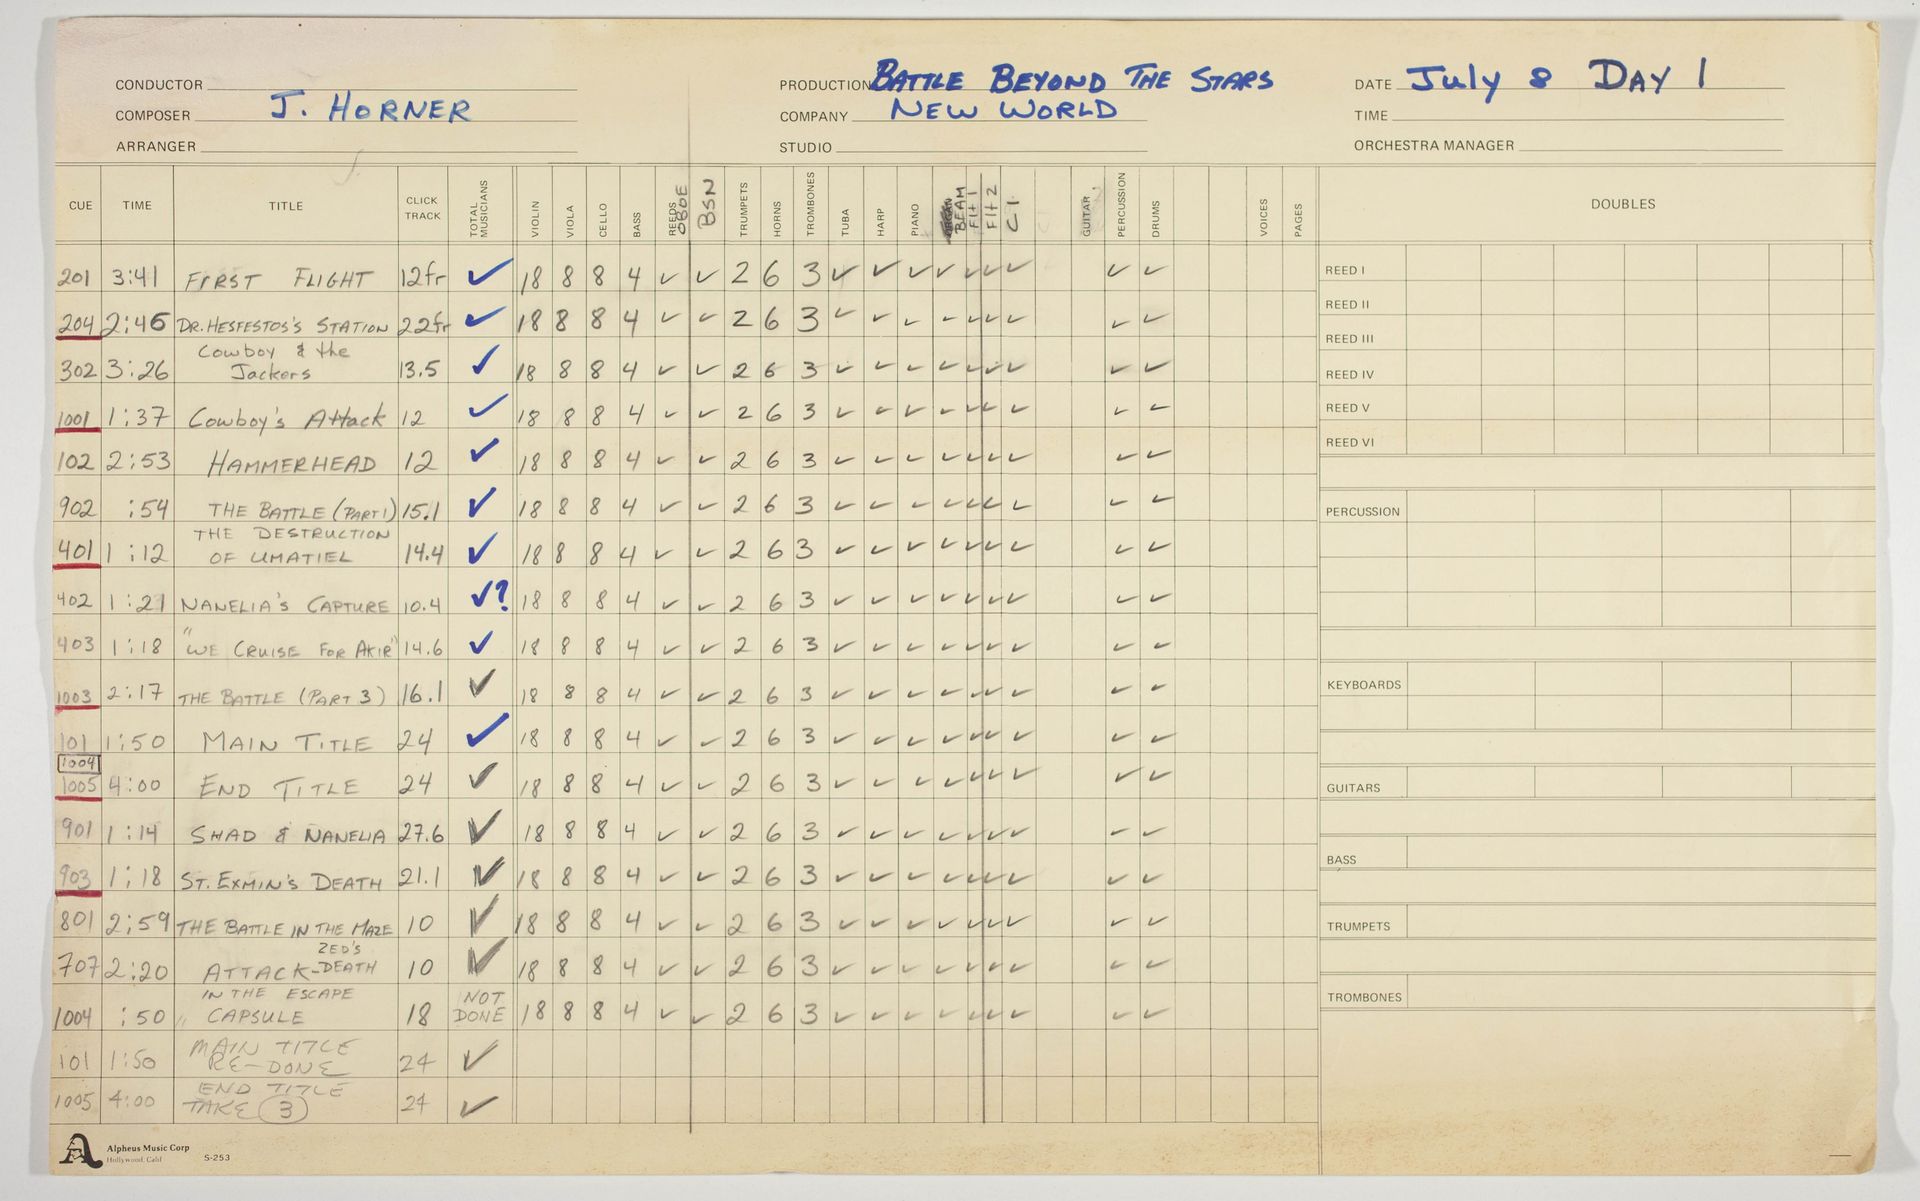 CONDUCTOR
COMPOSER J. HORNER
ARRANGER
PRODUCTION BATTLE BEYOND THE STARS
COMPANY NEW WORLD
STUDIO
DATE July 8 DAY 1
TIME
ORCHESTRA MANAGER
CUE TIME TITLE CLICK TRACK TOTAL MUSICIANS VIOLIN VIOLA CELLO BASS REEDS OBOE BSN TRUMPETS HORNS TROMBONES TUBA HARP PIANO BEAM Flt 1 Flt 2 Cl. GUITAR PERCUSSION DRUMS VOICES PAGES DOUBLES
201 3:41 FIRST FLIGHT 12fr ✓ 18 8 8 4 ✓ ✓ 2 6 3 ✓ ✓ ✓ ✓ ✓ ✓ ✓ ✓ ✓
204 2:46 DR. HESFESTOS'S STATION 22fr ✓ 18 8 8 4 ✓ ✓ 2 6 3 ✓ ✓ ✓ ✓ ✓ ✓ ✓ ✓ ✓
302 3:26 Cowboy & the Jackers 13.5 ✓ 18 8 8 4 ✓ ✓ 2 6 3 ✓ ✓ ✓ ✓ ✓ ✓ ✓ ✓ ✓
1001 1:37 Cowboy's Attack 12 ✓ 18 8 8 4 ✓ ✓ 2 6 3 ✓ ✓ ✓ ✓ ✓ ✓ ✓ ✓ ✓
102 2:53 HAMMERHEAD 12 ✓ 18 8 8 4 ✓ ✓ 2 6 3 ✓ ✓ ✓ ✓ ✓ ✓ ✓ ✓ ✓
902 :54 THE BATTLE (PART 1) 15.1 ✓ 18 8 8 4 ✓ ✓ 2 6 3 ✓ ✓ ✓ ✓ ✓ ✓ ✓ ✓ ✓
401 1:12 THE DESTRUCTION OF UMATIEL 14.4 ✓ 18 8 8 4 ✓ ✓ 2 6 3 ✓ ✓ ✓ ✓ ✓ ✓ ✓ ✓ ✓
402 1:21 NANELIA'S CAPTURE 10.4 ✓? 18 8 8 4 ✓ ✓ 2 6 3 ✓ ✓ ✓ ✓ ✓ ✓ ✓ ✓ ✓
403 1:18 "WE CRUISE FOR AKIR" 14.6 ✓ 18 8 8 4 ✓ ✓ 2 6 3 ✓ ✓ ✓ ✓ ✓ ✓ ✓ ✓ ✓
1003 2:17 THE BATTLE (PART 3) 16.1 ✓ 18 8 8 4 ✓ ✓ 2 6 3 ✓ ✓ ✓ ✓ ✓ ✓ ✓ ✓ ✓
101 1:50 MAIN TITLE 24 ✓ 18 8 8 4 ✓ ✓ 2 6 3 ✓ ✓ ✓ ✓ ✓ ✓ ✓ ✓ ✓
1004
1005 4:00 END TITLE 24 ✓ 18 8 8 4 ✓ ✓ 2 6 3 ✓ ✓ ✓ ✓ ✓ ✓ ✓ ✓ ✓
901 1:14 SHAD & NANELIA 27.6 ✓ 18 8 8 4 ✓ ✓ 2 6 3 ✓ ✓ ✓ ✓ ✓ ✓ ✓ ✓ ✓
903 1:18 ST. EXMIN'S DEATH 21.1 ✓ 18 8 8 4 ✓ ✓ 2 6 3 ✓ ✓ ✓ ✓ ✓ ✓ ✓ ✓ ✓
801 2:59 THE BATTLE IN THE MAZE 10 ✓ 18 8 8 4 ✓ ✓ 2 6 3 ✓ ✓ ✓ ✓ ✓ ✓ ✓ ✓ ✓
707 2:20 ATTACK-ZED'S DEATH 10 ✓ 18 8 8 4 ✓ ✓ 2 6 3 ✓ ✓ ✓ ✓ ✓ ✓ ✓ ✓ ✓
1004 :50 IN THE ESCAPE CAPSULE 18 NOT DONE 18 8 8 4 ✓ ✓ 2 6 3 ✓ ✓ ✓ ✓ ✓ ✓ ✓ ✓ ✓
101 1:50 MAIN TITLE RE-DONE 24 ✓
1005 4:00 END TITLE TAKE 3 24 ✓
REED I
REED II
REED III
REED IV
REED V
REED VI
PERCUSSION
KEYBOARDS
GUITARS
BASS
TRUMPETS
TROMBONES
Alpheus Music Corp
Hollywood, Calif S-253